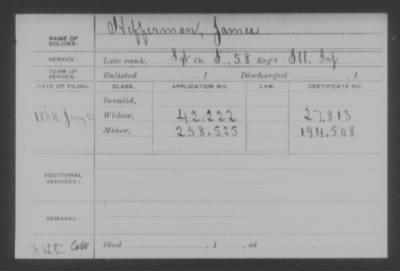 NAME OF SOLDIER: Hefferman, James
SERVICE: Late rank, Sgt Co. , 58 Reg't Ill. Inf
TERM OF SERVICE: Enlisted , 1 Discharged , 1
DATE OF FILING. CLASS. APPLICATION NO. LAW. CERTIFICATE NO.
Invalid,
Widow, 42.222 27.813
Minor, 238.525 194.508
ADDITIONAL SERVICES:
REMARKS:
Died , 1 , at